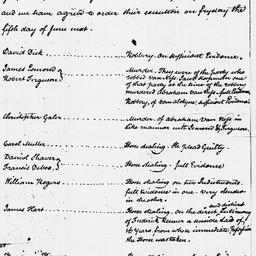 and we have agreed to order their execution on fryday the
fifth day of June next.
David Dick Robbery. on sufficient Evidence.
James Emond Murder. They were of the party who
Robert Ferguson robbed Van Ness. Jacob
that party at the time of the robbery
murdered Abraham Van Ness full Evidence
Robbery, of sufficient Evidence
Christopher Murder of Abraham Van Ness in
like manner with Emond & Ferguson.
Carel Muller Horse stealing. He plead Guilty.
Daniel Shaver
Francis Horse stealing. full Evidence
William Rogers Horse stealing on two Indictments.
full Evidence in one. Very slender
in the other. and distinct
James Hart Horse stealing. on the direct testimony
of Frederick a sensible lad of
16 Years from whose immediate
the Horse was taken.